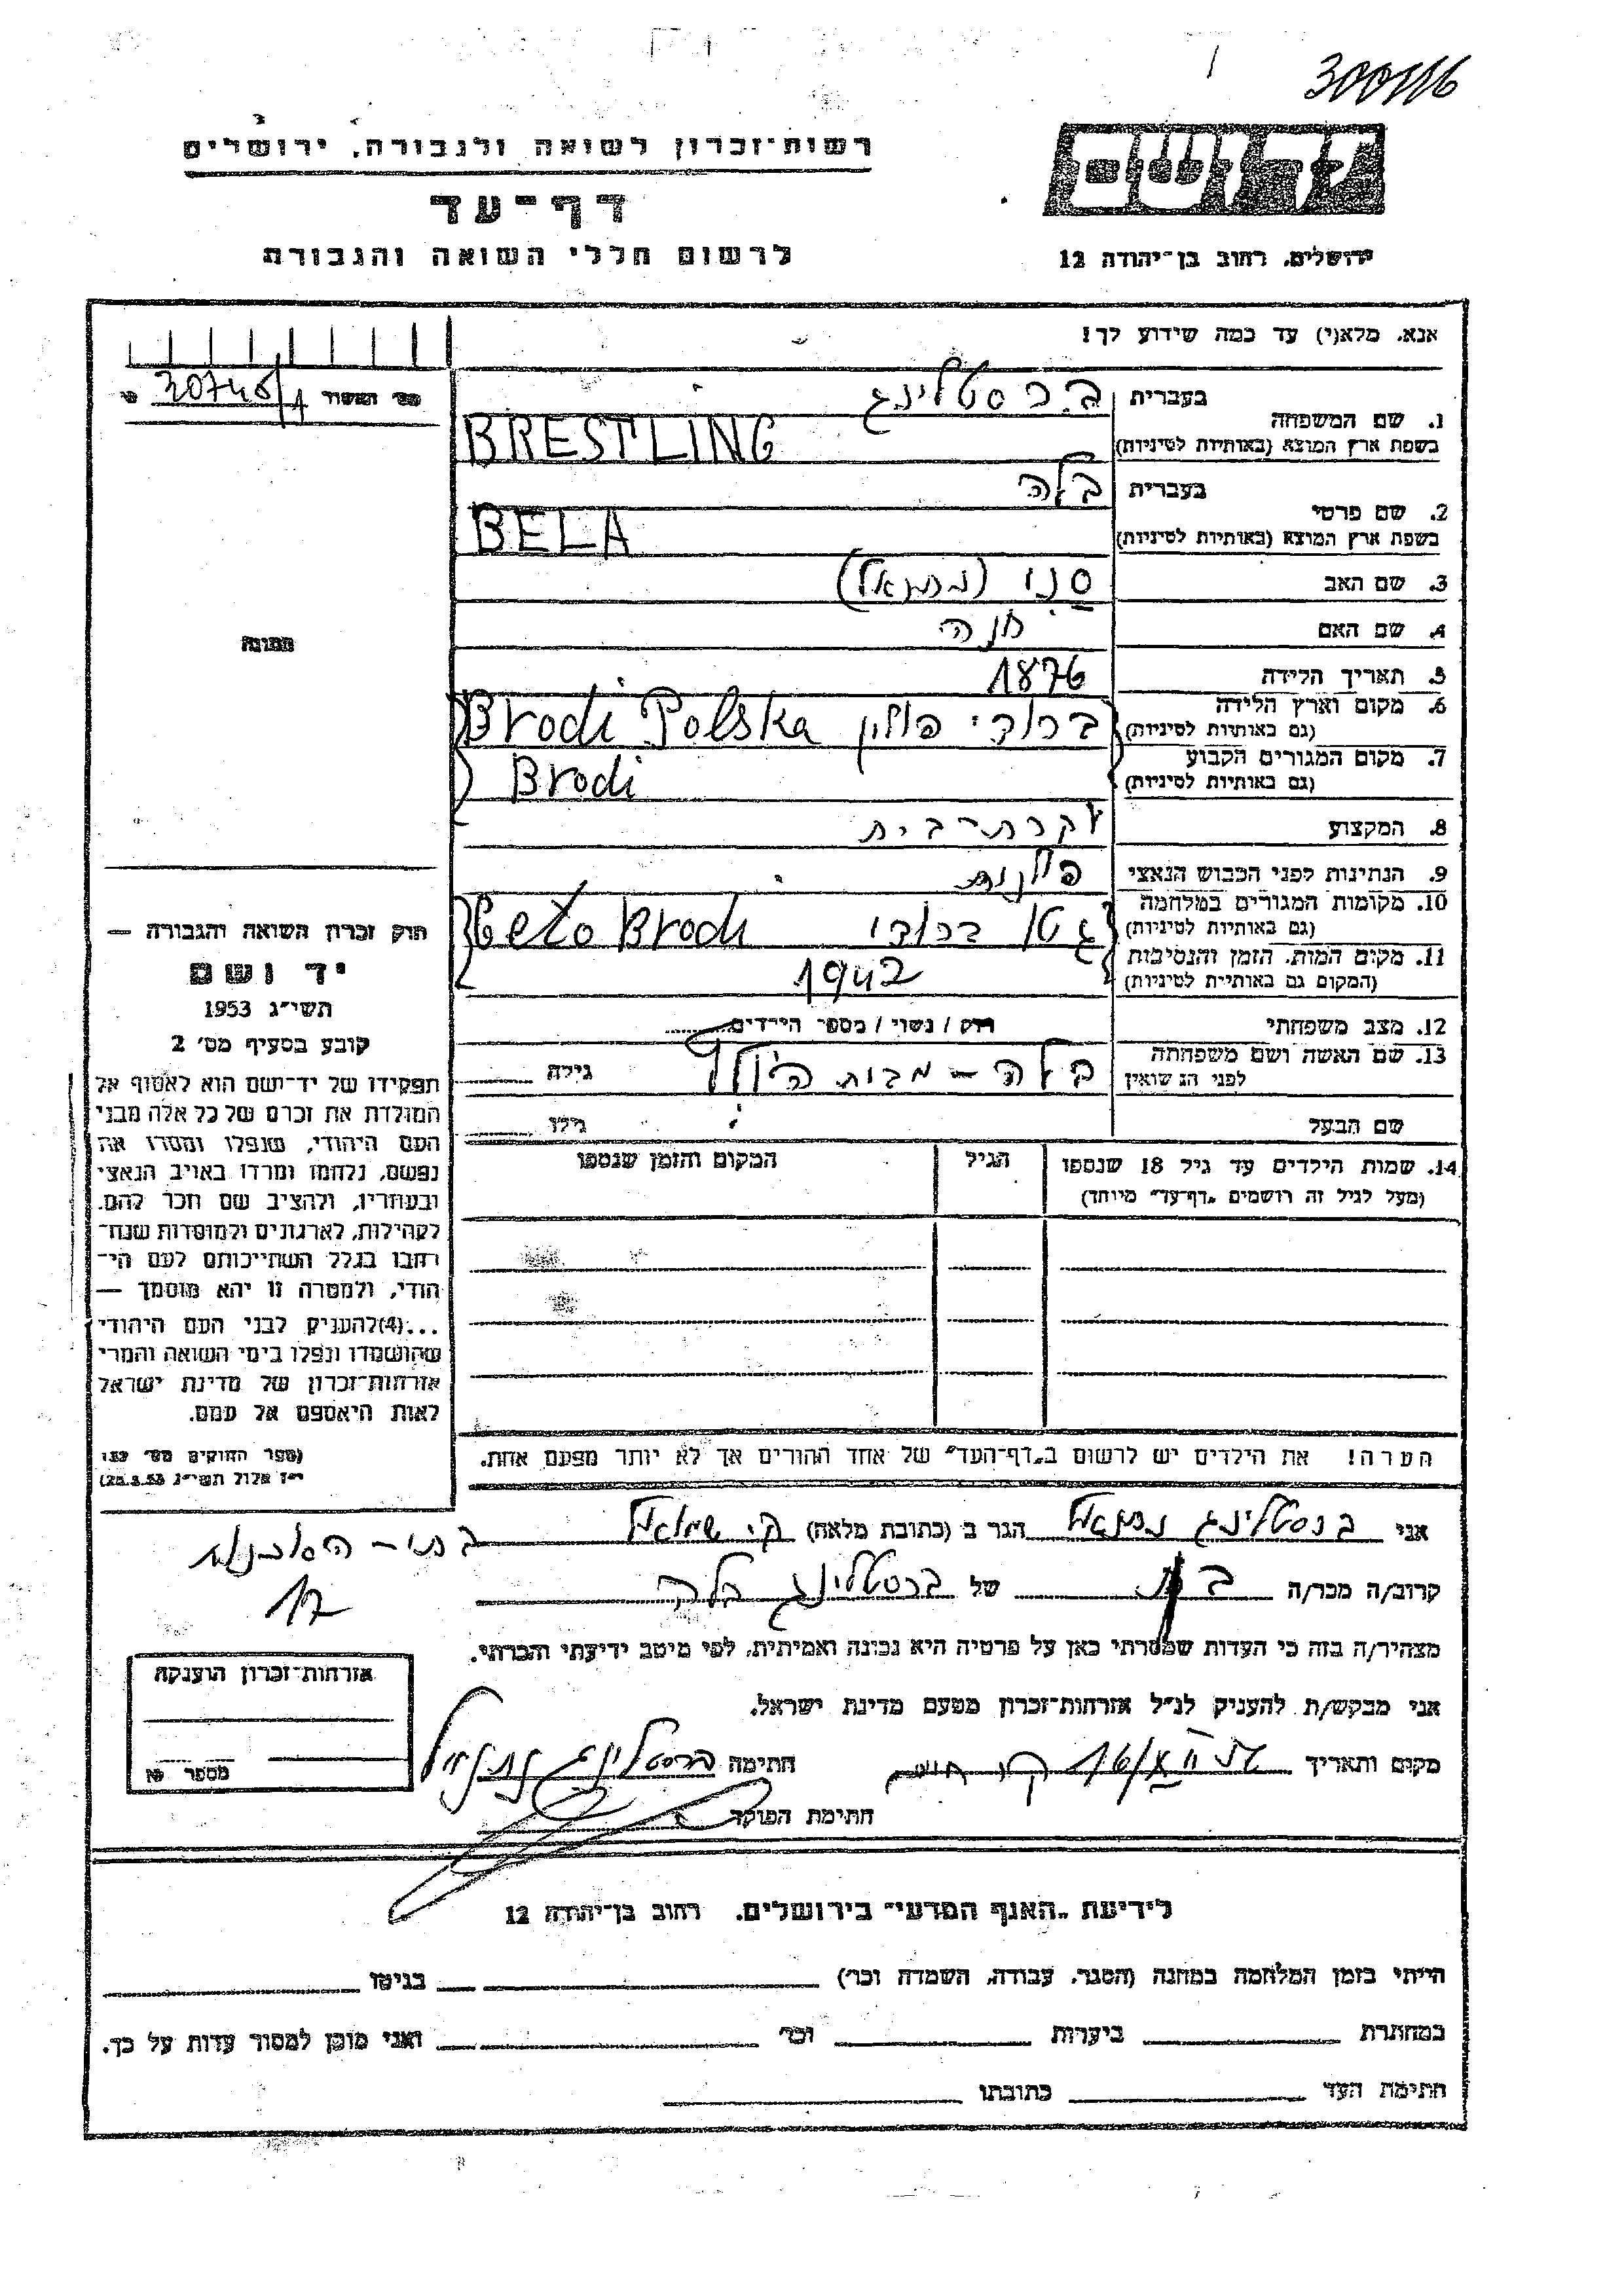 300116
רשות־זכרון לשואה ולגבורה, ירושלים
דף־עד
לרשום חללי השואה והגבורה
יד ושם
ירושלים, רחוב בן־יהודה 12
אנא, מלא(י) עד כמה שידוע לך!
1. שם המשפחה
בעברית ברסטלינג
בשפת ארץ המוצא (באותיות לטיניות) BRESTLING
2. שם פרטי
בעברית בלה
בשפת ארץ המוצא (באותיות לטיניות) BELA
3. שם האב
4. שם האם חנה
5. תאריך הלידה 1876
6. מקום וארץ הלידה (גם באותיות לטיניות) ברודי פולין Brodi Polska
7. מקום המגורים הקבוע (גם באותיות לטיניות) Brodi
8. המקצוע עקרת־בית
9. הנתינות לפני הכבוש הנאצי פולנית
10. מקומות המגורים במלחמה (גם באותיות לטיניות) גטו ברודי Geto Brodi
11. מקום המות, הזמן והנסיבות (המקום גם באותיות לטיניות) 1942
12. מצב משפחתי רוק / נשוי / מספר הילדים
13. שם האשה ושם משפחתה לפני הנשואין בלה – מבית גילה
שם הבעל גילו
14. שמות הילדים עד גיל 18 שנספו הגיל המקום והזמן שנספו
(מעל לגיל זה רושמים „דף־עד” מיוחד)
הערה! את הילדים יש לרשום ב„דף־העד” של אחד ההורים אך לא יותר מפעם אחת.
מס׳ האשור 20746/A
תמונה
חוק זכרון השואה והגבורה —
יד ושם
תשי״ג 1953
קובע בסעיף מס׳ 2
תפקידו של יד־ושם הוא לאסוף אל
המולדת את זכרם של כל אלה מבני
העם היהודי, שנפלו ומסרו את
נפשם, נלחמו ומרדו באויב הנאצי
ובעוזריו, ולהציב שם וזכר להם,
לקהילות, לארגונים ולמוסדות שנח־
רבו בגלל השתייכותם לעם הי־
הודי, ולמטרה זו יהא מוסמך —
...(4) להעניק לבני העם היהודי
שהושמדו ונפלו בימי השואה והמרי
אזרחות־זכרון של מדינת ישראל
לאות היאספם אל עמם.
(ספר החוקים מס׳ 132
י״ז אלול תשי״ג 28.8.53)
אני ברסטלינג הגר ב (כתובת מלאה) ק. שמואל
17
קרוב/ה מכר/ה בן של ברסטלינג בלה
מצהיר/ה בזה כי העדות שמסרתי כאן על פרטיה היא נכונה ואמיתית, לפי מיטב ידיעתי והכרתי.
אני מבקש/ת להעניק לנ״ל אזרחות־זכרון מטעם מדינת ישראל.
מקום ותאריך חתימה ברסטלינג
חתימת הפוקד
אזרחות־זכרון הוענקה
מספר
לידיעת „האגף המדעי” בירושלים, רחוב בן־יהודה 12
הייתי בזמן המלחמה במחנה (הסגר, עבודה, השמדה וכו׳) בגיטו
במחתרת ביערות וכו׳ ואני מוכן למסור עדות על כך.
חתימת העד כתובתו